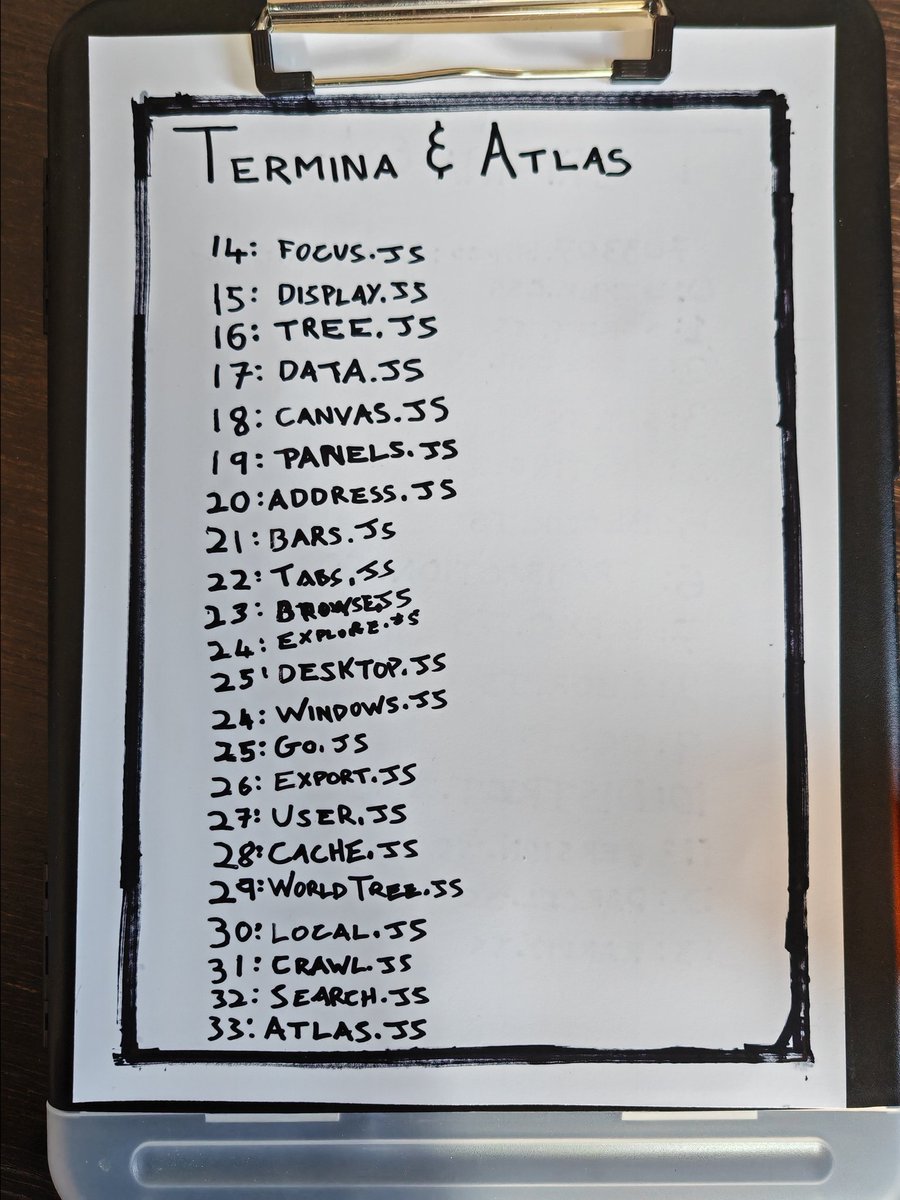 TERMINA & ATLAS
14: FOCUS.JS
15: DISPLAY.JS
16: TREE.JS
17: DATA.JS
18: CANVAS.JS
19: PANELS.JS
20: ADDRESS.JS
21: BARS.JS
22: TABS.JS
23: BROWSE.JS
24: EXPLORE.JS
25: DESKTOP.JS
24: WINDOWS.JS
25: GO.JS
26: EXPORT.JS
27: USER.JS
28: CACHE.JS
29: WORLDTREE.JS
30: LOCAL.JS
31: CRAWL.JS
32: SEARCH.JS
33: ATLAS.JS